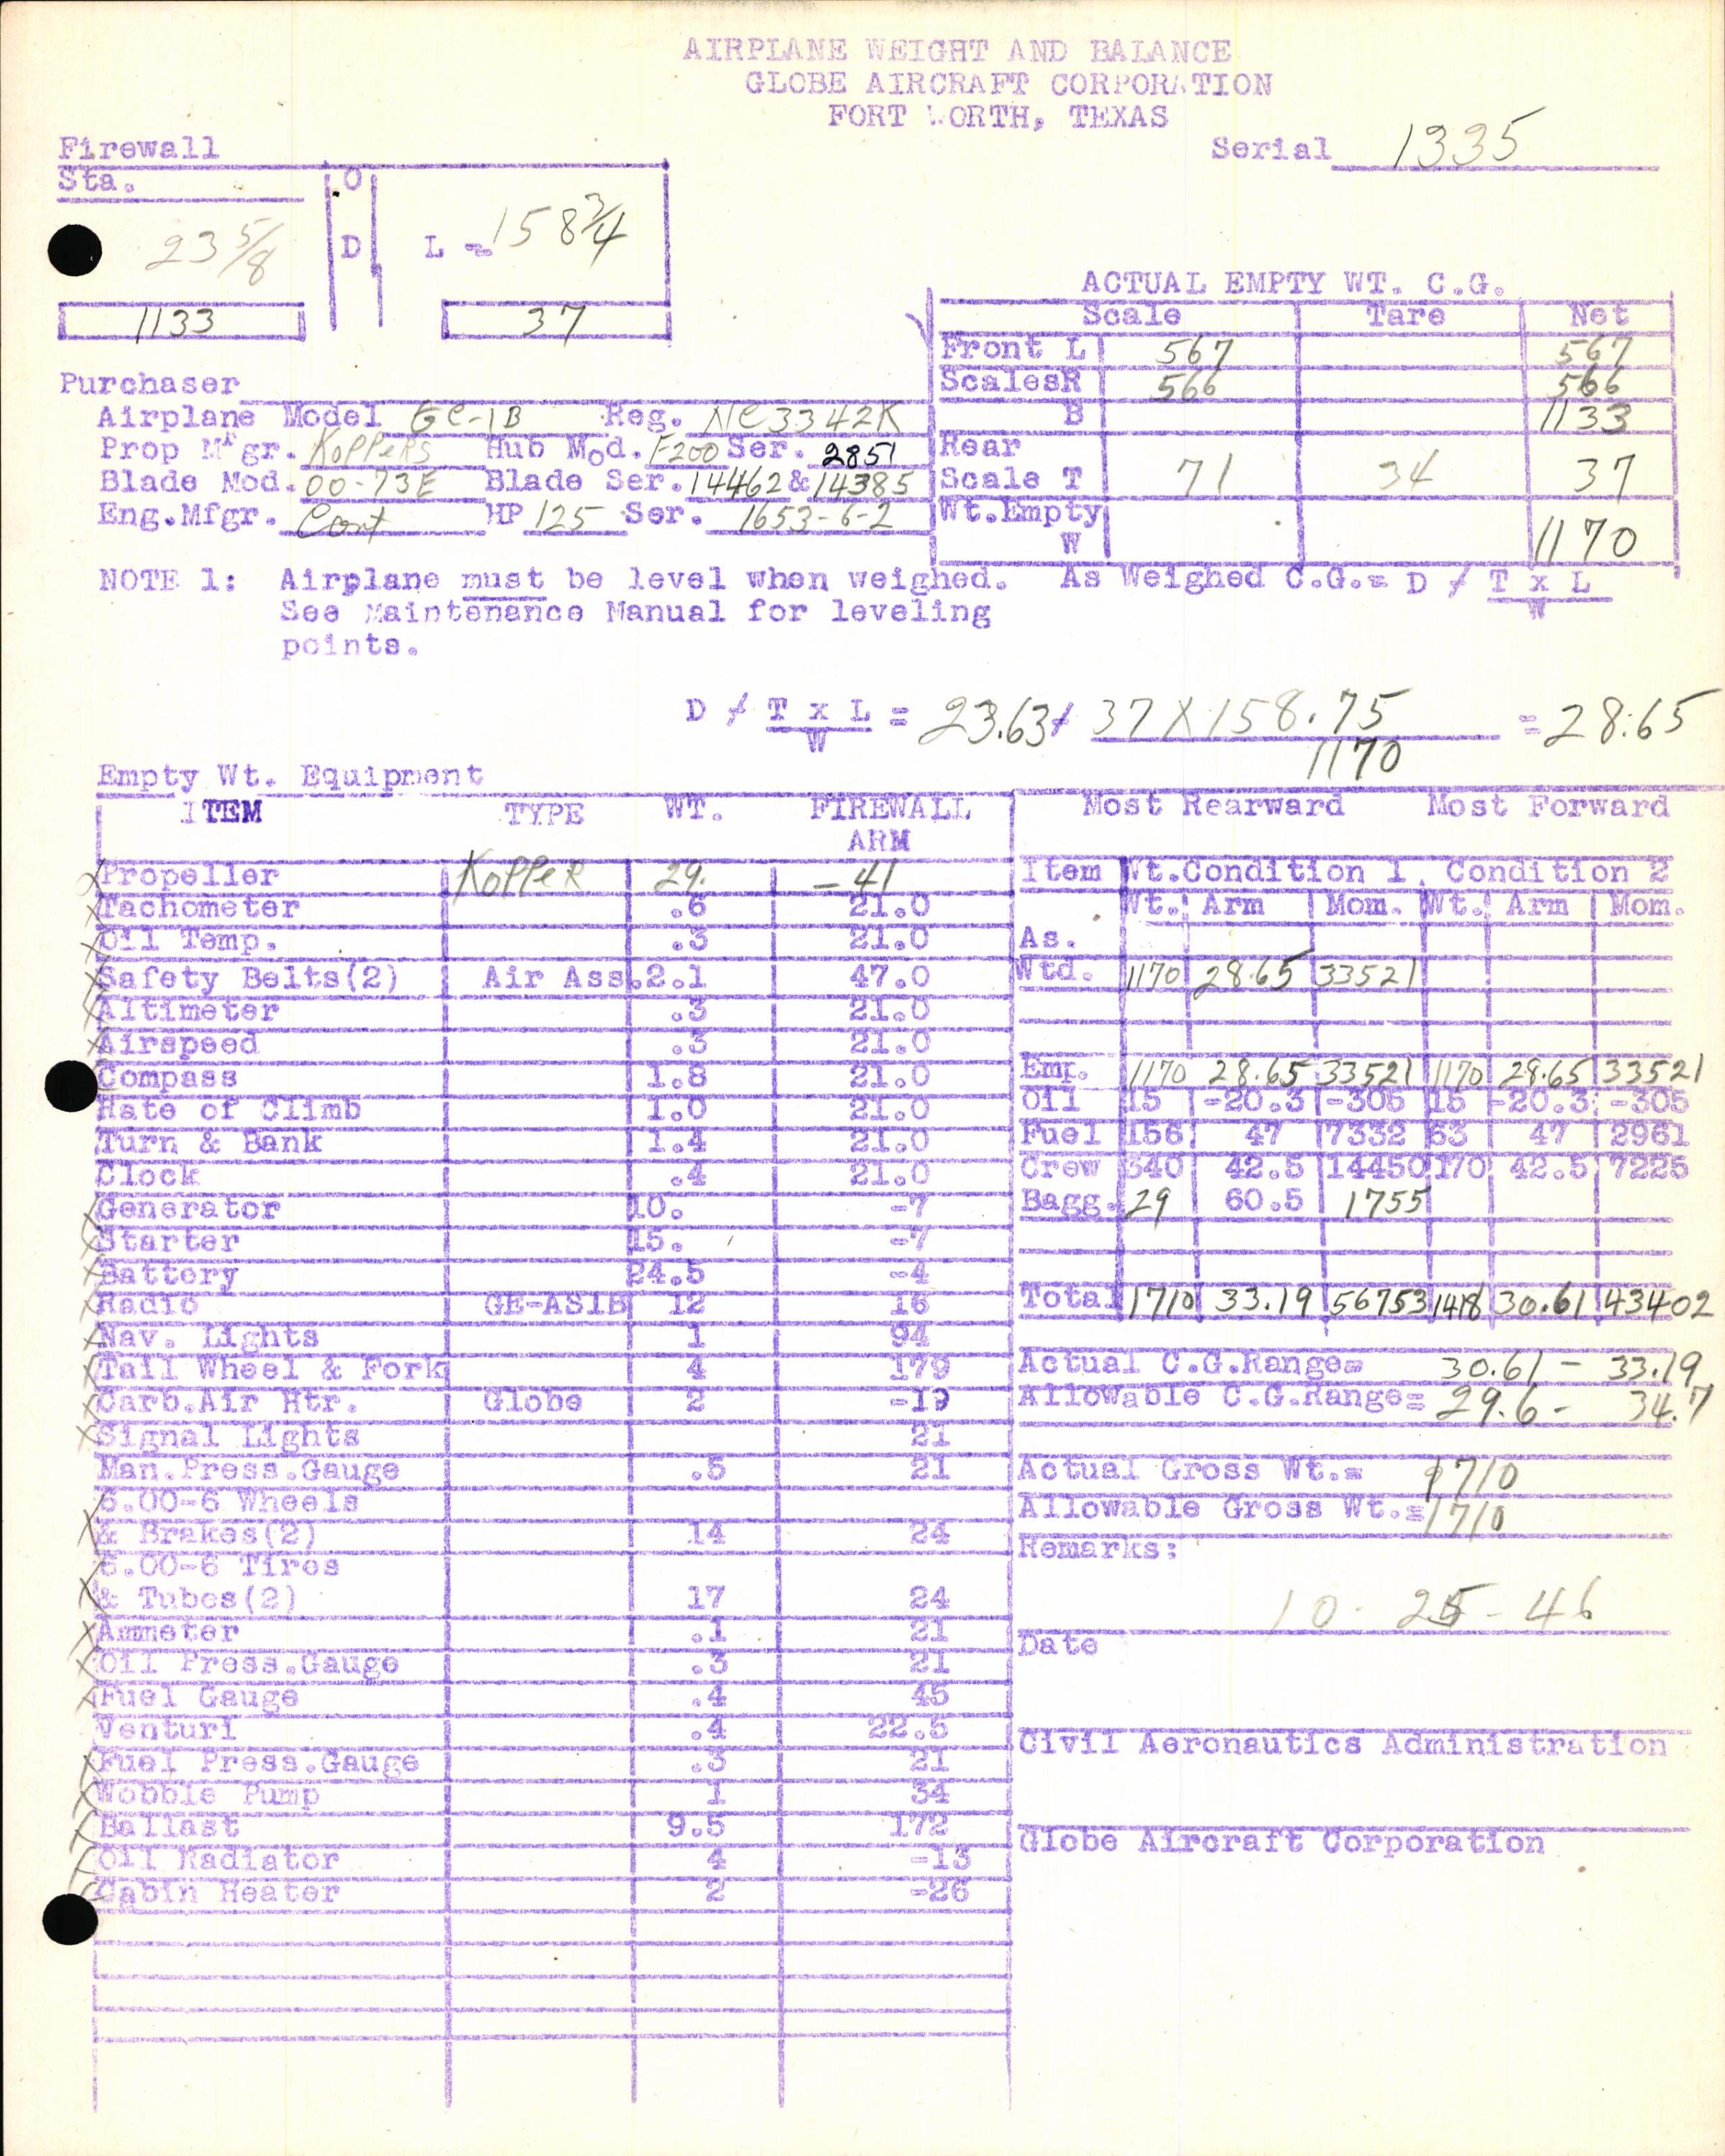 AIRPLANE WEIGHT AND BALANCE
GLOBE AIRCRAFT CORPORATION
FORT WORTH, TEXAS
Serial 1335
Firewall
Sta.
O
23 5/8
D
L = 158 3/4
1133
37
ACTUAL EMPTY WT. C.G.
Scale Tare Net
Front L 567 567
Scales R 566 566
B 1133
Rear
Scale T 71 34 37
Wt.Empty
W 1170
Purchaser
Airplane Model GC-1B Reg. NC3342K
Prop Mfgr. KOPPERS Hub Mod. F200 Ser. 2851
Blade Mod. 00-73E Blade Ser. 14462 & 14385
Eng.Mfgr. Cont HP 125 Ser. 1653-6-2
NOTE 1: Airplane must be level when weighed.
See Maintenance Manual for leveling
points.
As Weighed C.G.= D / T x L
W
D / T x L = 23.63 / 37 X 158.75 = 28.65
W 1170
Empty Wt. Equipment
ITEM TYPE WT. FIREWALL
ARM
Propeller KOPPER 29. -41
Tachometer .6 21.0
Oil Temp. .3 21.0
Safety Belts(2) Air Ass. 2.1 47.0
Altimeter .3 21.0
Airspeed .3 21.0
Compass 1.8 21.0
Rate of Climb 1.0 21.0
Turn & Bank 1.4 21.0
Clock .4 21.0
Generator 10. -7
Starter 15. -7
Battery 24.5 -4
Radio GE-AS1B 12 16
Nav. Lights 1 94
Tail Wheel & Fork 4 179
Carb.Air Htr. Globe 2 -19
Signal Lights 21
Man.Press.Gauge .5 21
6.00-6 Wheels
& Brakes(2) 14 24
6.00-6 Tires
& Tubes(2) 17 24
Ammeter .1 21
Oil Press.Gauge .3 21
Fuel Gauge .4 45
Venturi .4 22.5
Fuel Press.Gauge .3 21
Wobble Pump 1 34
Ballast 9.5 172
Oil Radiator 4 -13
Cabin Heater 2 -26
Most Rearward Most Forward
Item Wt.Condition 1 Condition 2
Wt. Arm Mom. Wt. Arm Mom.
As.
Wtd. 1170 28.65 33521
Emp. 1170 28.65 33521 1170 28.65 33521
Oil 15 -20.3 -305 15 -20.3 -305
Fuel 156 47 7332 63 47 2961
Crew 340 42.5 14450 170 42.5 7225
Bagg. 29 60.5 1755
Total 1710 33.19 56753 1418 30.61 43402
Actual C.G.Range= 30.61 - 33.19
Allowable C.G.Range= 29.6 - 34.7
Actual Gross Wt.= 1710
Allowable Gross Wt.= 1710
Remarks:
10-25-46
Date
Civil Aeronautics Administration
Globe Aircraft Corporation